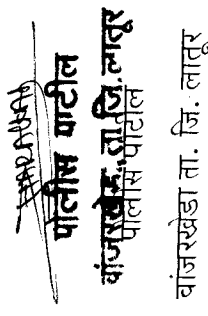 पोलीस पाटील
वांजरखेडा, ता. जि. लातूर
पोलीस पाटील
वांजरखेडा ता. जि. लातूर